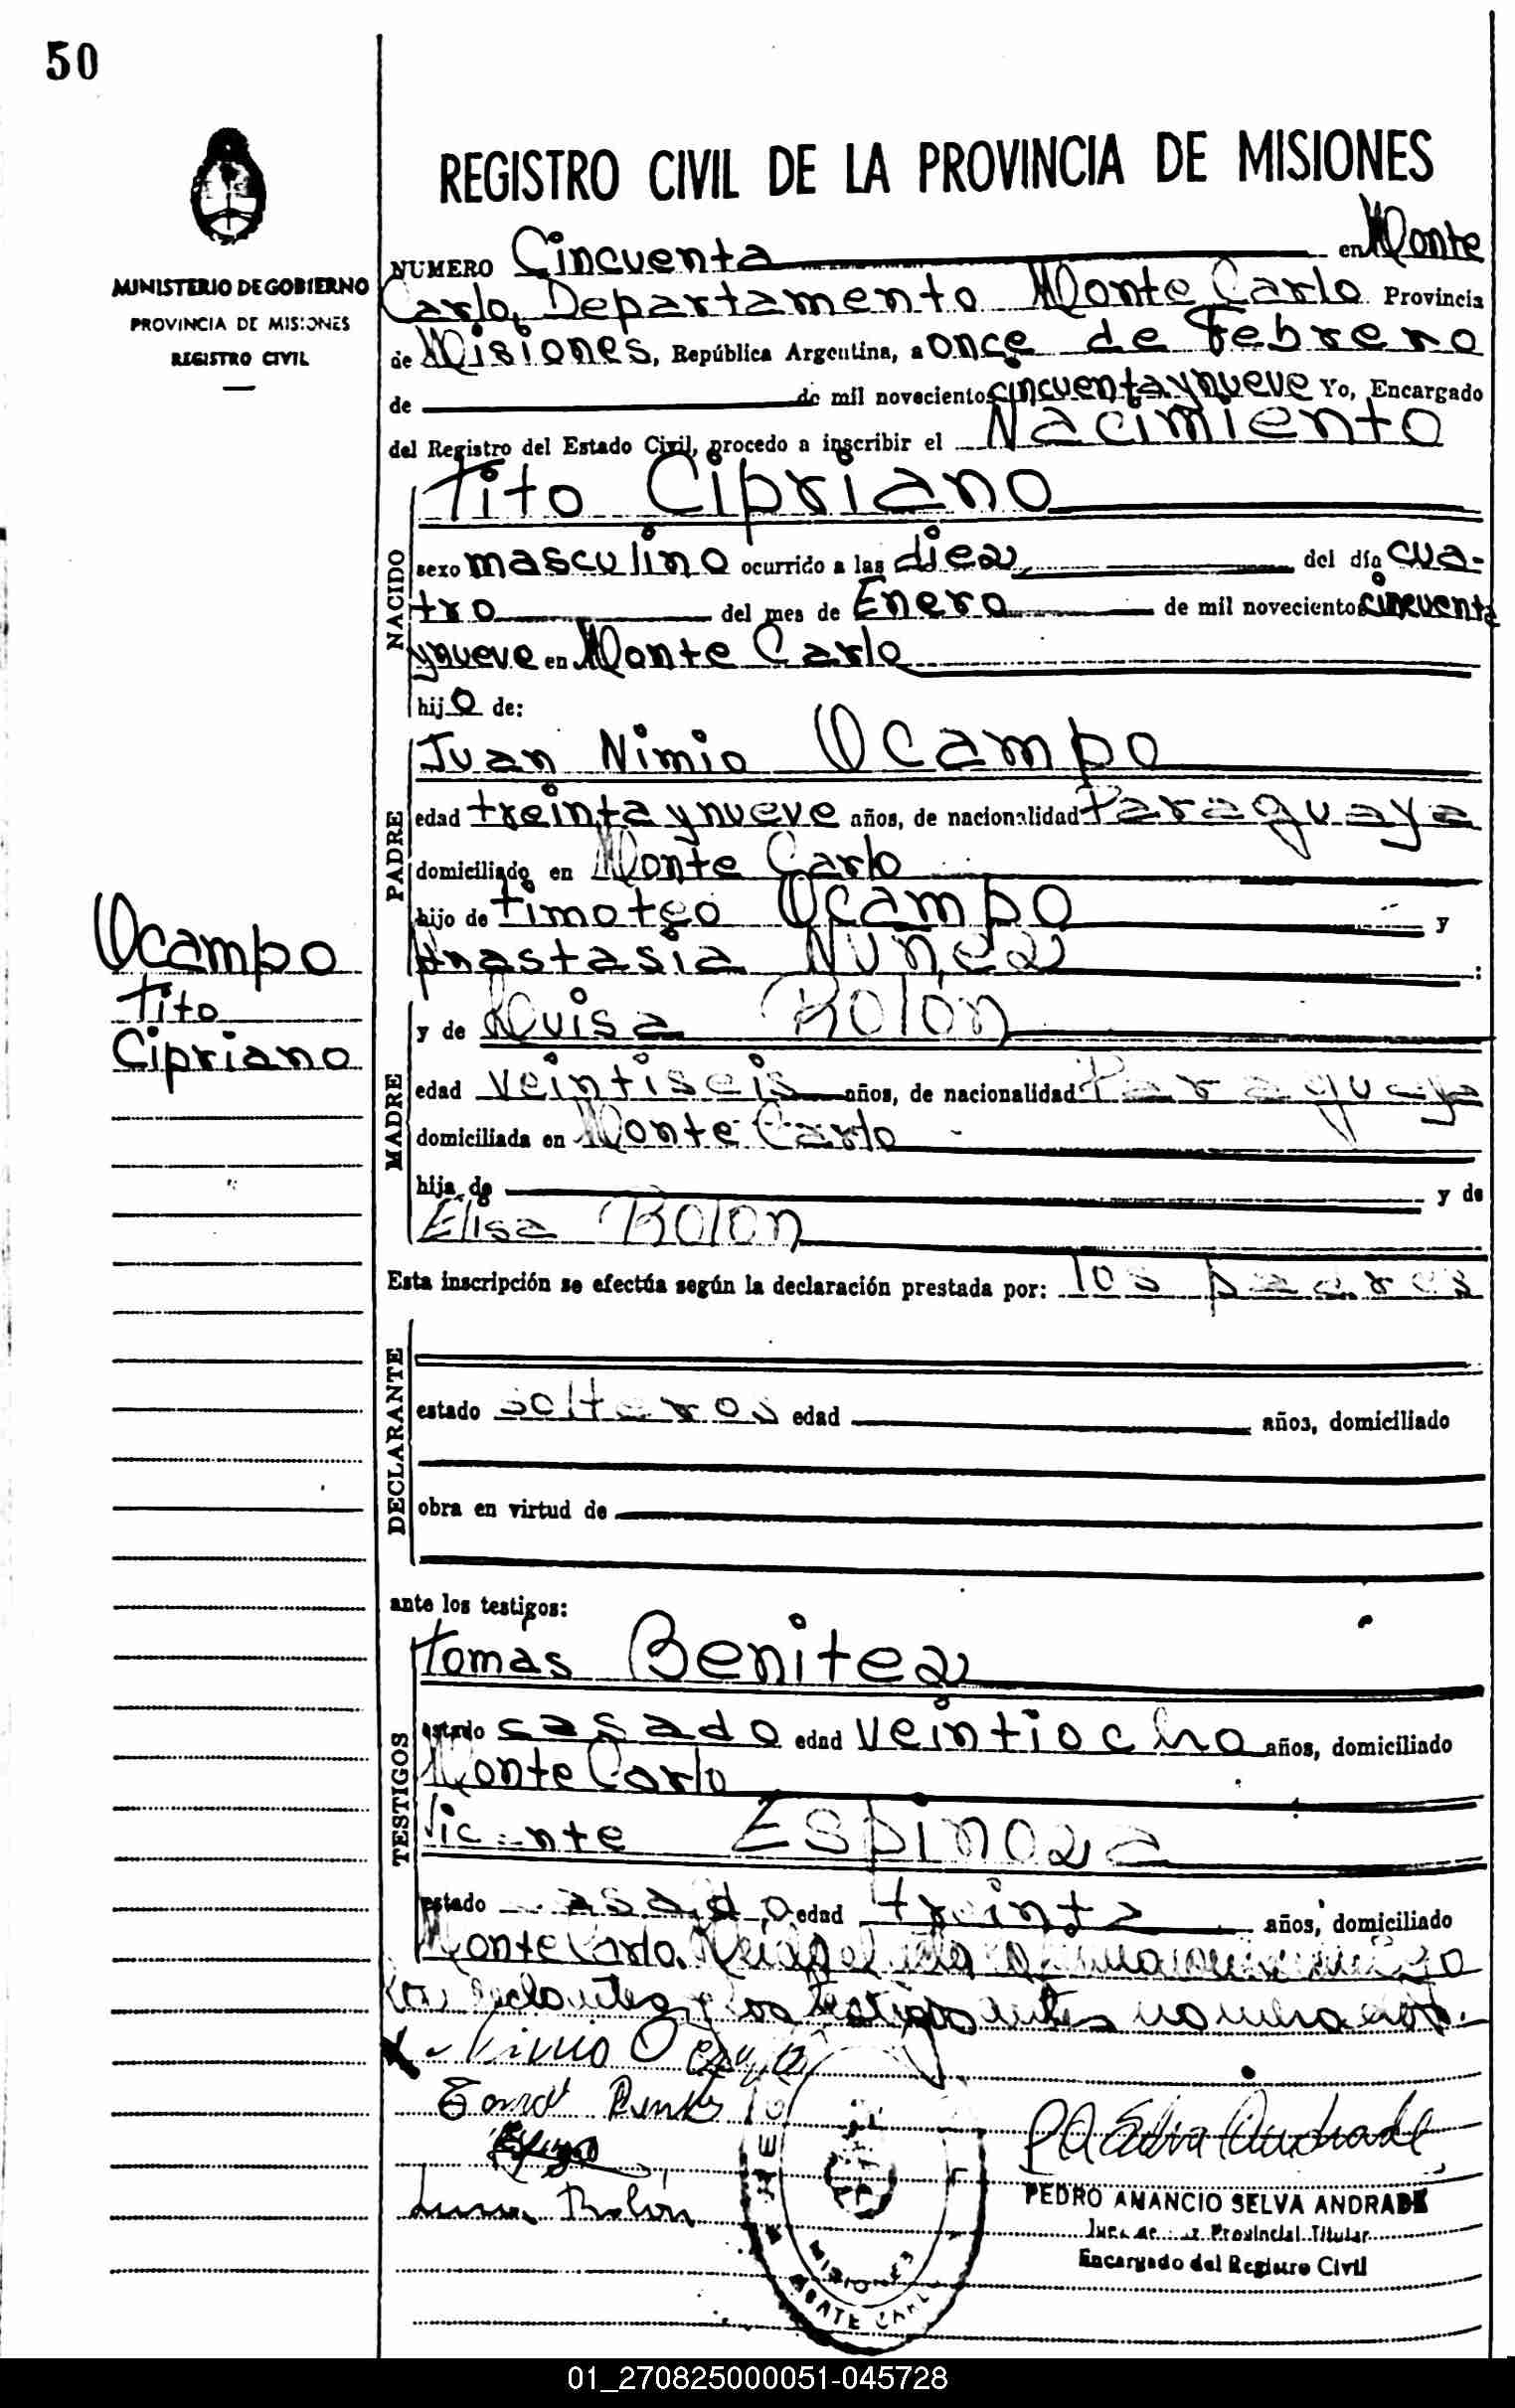 50
MINISTERIO DE GOBIERNO
PROVINCIA DE MISIONES
REGISTRO CIVIL
Ocampo
Tito
Cipriano
REGISTRO CIVIL DE LA PROVINCIA DE MISIONES
NUMERO Cincuenta en Monte
Carlo, Departamento Monte Carlo Provincia
de Misiones, República Argentina, a once de Febrero
de de mil novecientos cincuenta y nueve Yo, Encargado
del Registro del Estado Civil, procedo a inscribir el Nacimiento
NACIDO
Tito Cipriano
sexo masculino ocurrido a las diez del día cua-
tro del mes de Enero de mil novecientos cincuenta
y nueve en Monte Carlo
hijo de:
PADRE
Juan Nimio Ocampo
edad treinta y nueve años, de nacionalidad Paraguaya
domiciliado en Monte Carlo
hijo de Timoteo Ocampo y
Anastasia Nuñez :
MADRE
y de Luisa Rolón
edad veintiseis años, de nacionalidad Paraguaya
domiciliada en Monte Carlo
hija de y de
Elisa Rolon
Esta inscripción se efectúa según la declaración prestada por: los padres
DECLARANTE
estado solteros edad años, domiciliado
obra en virtud de
ante los testigos:
TESTIGOS
Tomas Benitez
estado casado edad veintiocho años, domiciliado
Monte Carlo
Vicente Espinoza
estado casado edad treinta años, domiciliado
Monte Carlo. Leida el acta
los y los testigos antes nombrados.
Nimio Ocampo
Rolón
MISIONES
MONTE CARLO
PEDRO AMANCIO SELVA ANDRADE
Juez de Paz Provincial Titular
Encargado del Registro Civil
01_270825000051-045728